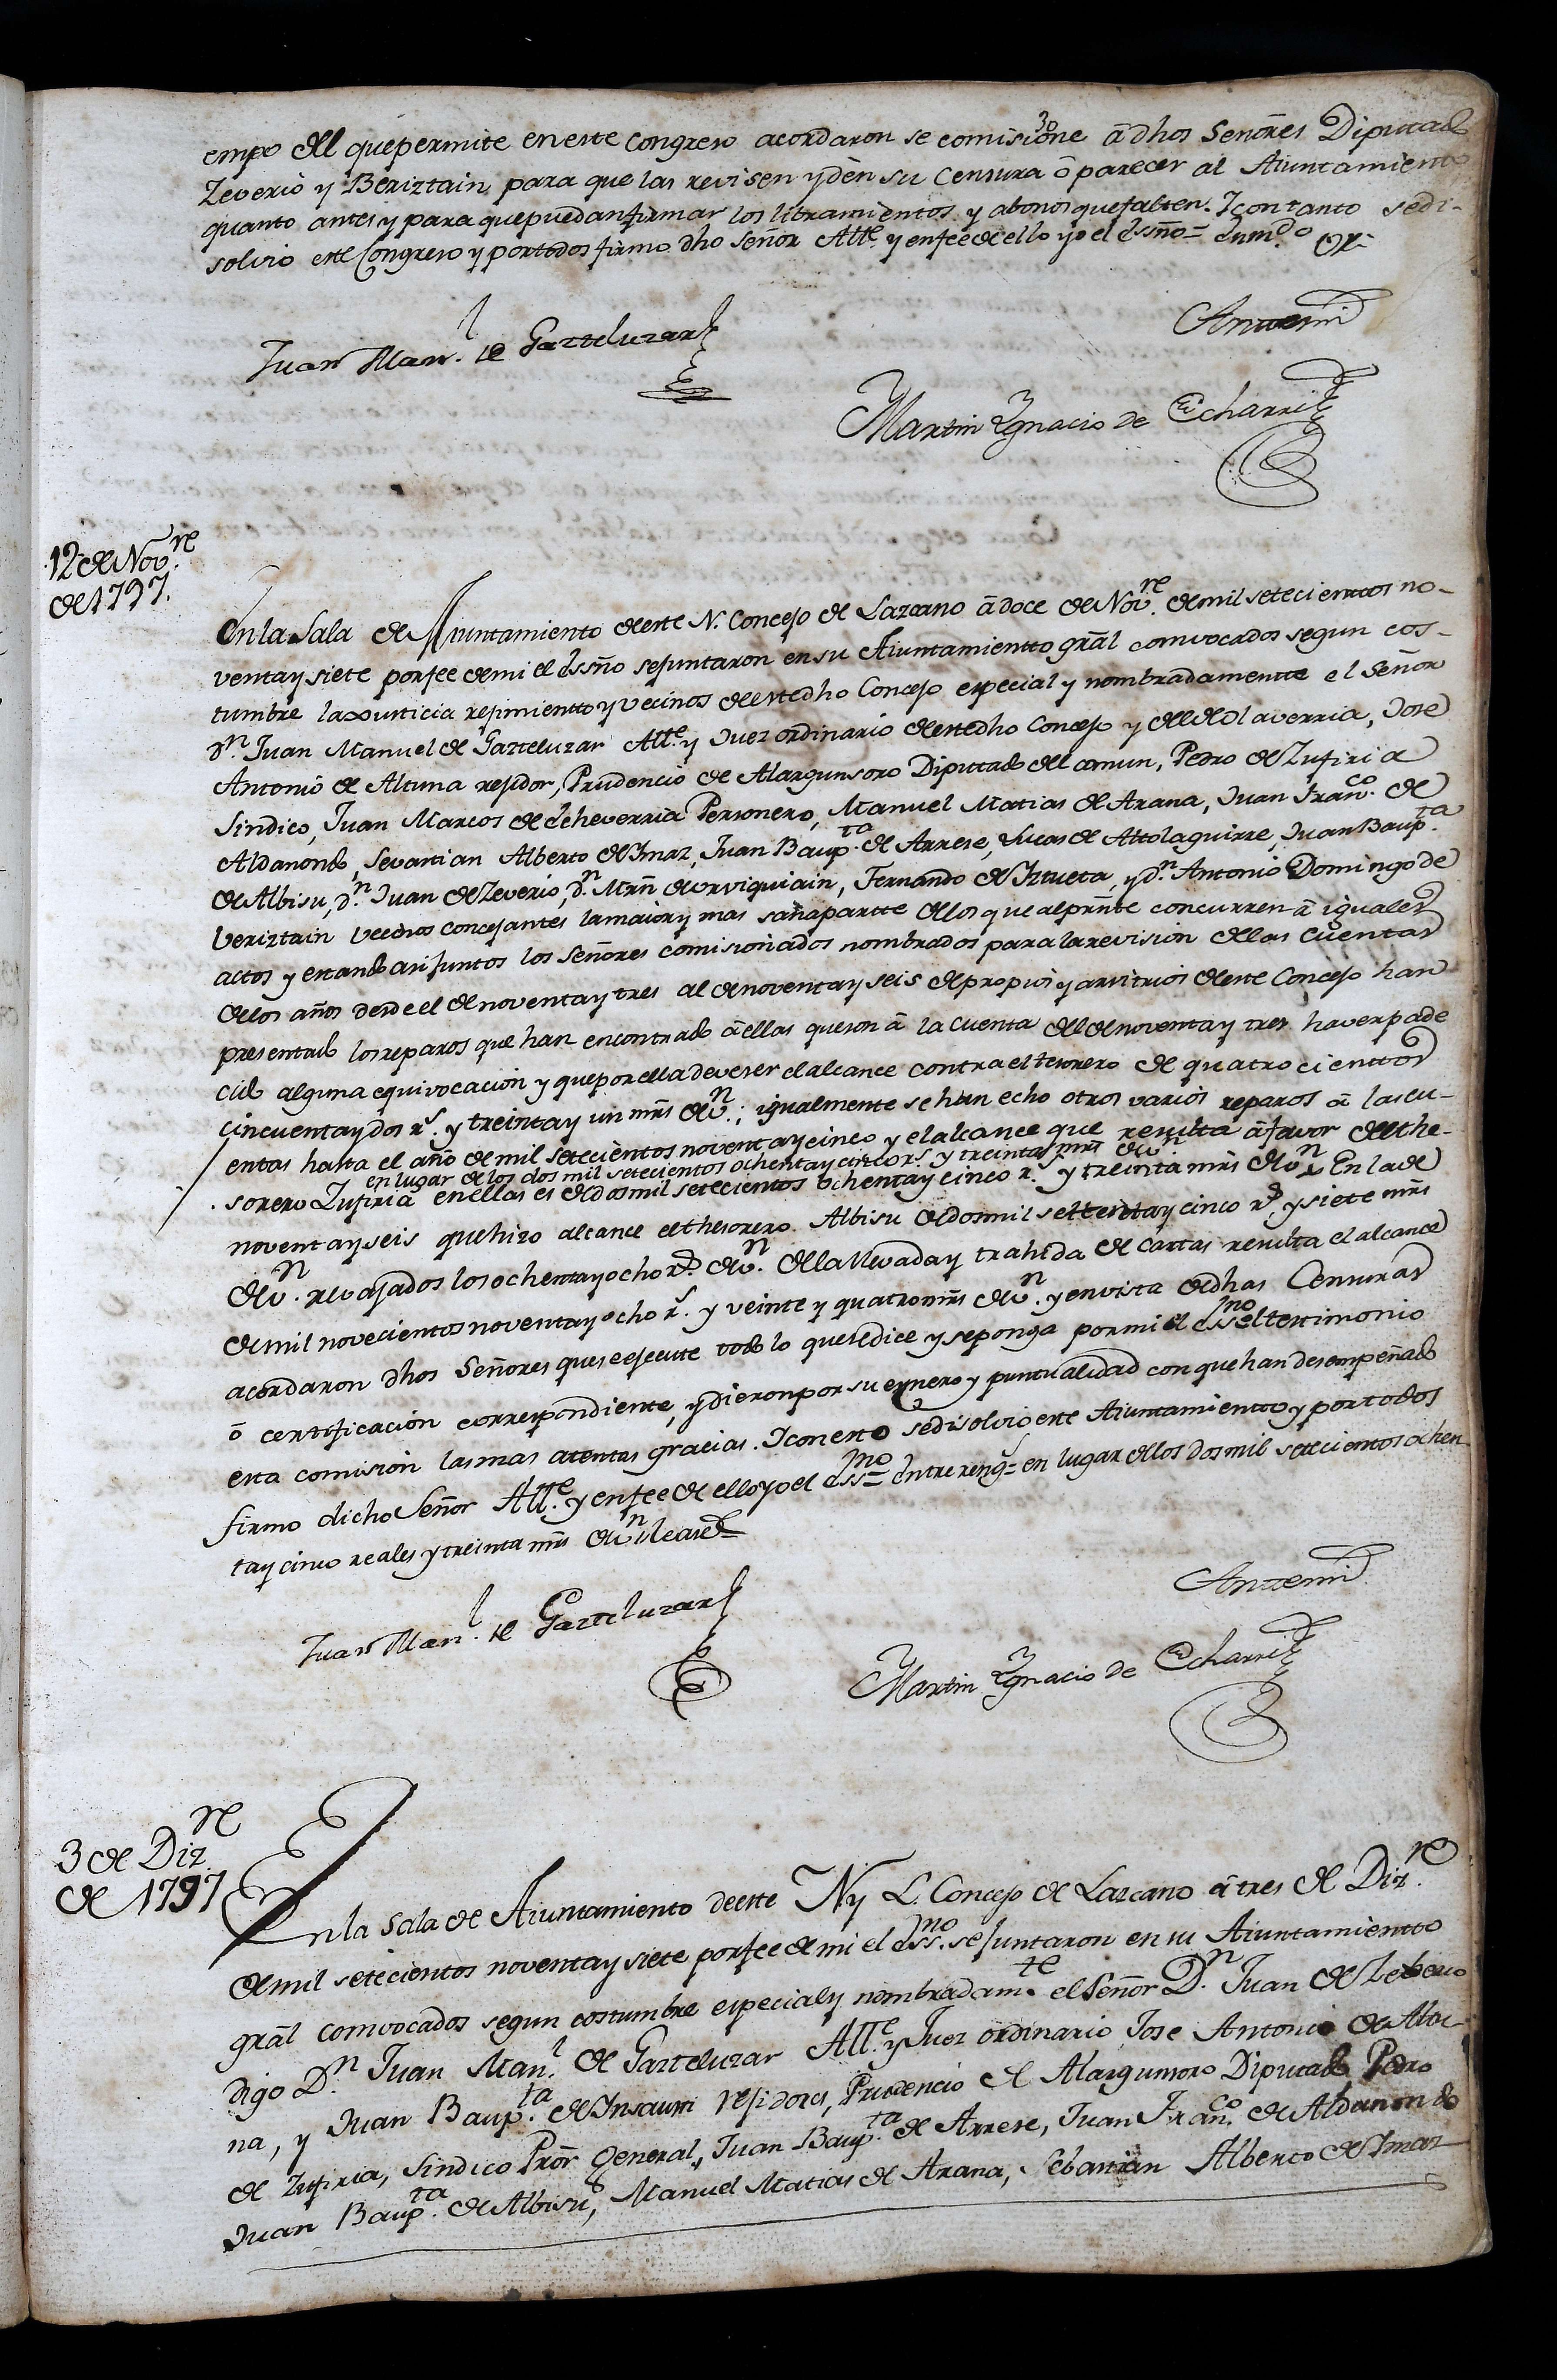 empo del que permite en este Congreso acordaron se comisione â dhos Señores Diputado
Zeverio y Beriztain para que las revisen y dèn su Censura ô parecer al Aiuntamiento
quanto antes y para que puedan firmar los libramientos y abonos que falten. I con tanto se di-
solvio este Congreso y por todos firmo dho Señor Alle. y en fee de ello yo el Essño= Enmdo
Juan Manl. de Gazteluzar
Antemi
Martin Ygnacio de Echarri
12 de Novre.
de 1797.
En la Sala de Aiuntamiento de este N. Concejo de Lazcano â doce de Novre. de mil setecientos no-
venta y siete por fee de mi el Essño se juntaron en su Aiuntamientto grãl comvocados segun cos-
tumbre la Justicia rejimientto y vecinos de este dho Concejo especial y nombradamentte el Señor
Dn. Juan Manuel de Gazteluzar Alle. y Juez ordinario de este dho Concejo y del de Olaverria, Jose
Antonio de Altuna rejidor, Prudencio de Alargunsoro Diputado del comun, Pedro de Zufiria
Sindico, Juan Marcos de Echeverria Personero, Manuel Matias de Arana, Juan Franco. de
Aldanondo, Sevastian Alberto de Ymaz, Juan Baupta. de Arrese, Lucas de Attolaguirre, Juan Baupta.
de Albisu, Dn. Juan de Zeverio, Dn. Mrñ de Urviquiain, Fernando de Yztueta, y Dn. Antonio Domingo de
Veriztain Vecinos concejantes la maior y mas sana partte de los que al prñte concurren â iguales
actos y estando asi juntos los Señores comisionados nombrados para la revision de las Cuentas
de los años desde el de noventa y tres al de noventa y seis de propios y arvitrios de este Concejo han
presentado los reparos que han encontrado â ellas que son â la Cuenta del de noventa y tres haver pade
cido alguna equivocacion y que por ella deve ser el alcance contra el tesorero de quatrocienttos
cincuenta y dos rs. y treinta y un mrs de vn.; igualmente se han echo otros varios reparos â las cu-
entas hasta el año de mil setecientos noventa y cinco y el alcance que resulta â favor del the-
en lugar de los dos mil setecientos ochenta y cinco rs. y treinta mrs de vn
sorero Zufiria en ellas es de dos mil setecientos ochenta y cinco rs. y treinta mrs de vn. En la de
noventa y seis que hizo alcance el thesorero Albisu de dos mil settenta y cinco rs. y siete mrs
de vn. revajados los ochenta y ocho rs. de vn. de la llevada y trahida de cartas resulta el alcance
de mil novecientos noventa y ocho rs. y veinte y quatro mrs de vn. y en vista de dhas Censuras
acordaron dhos Señores que se ejecute todo lo que se dice y se ponga por mi el essno el testimonio
ô certificacion correspondiente, y dieron por su esmero y puntualidad con que han desempeñado
esta comision las mas atentas gracias. I con esto se disolvio este Aiuntamientto y por todos
firmo dicho Señor Alle. y en fee de ello yo el Essno= Entre rengs= en lugar de los dos mil setecientos ochen
ta y cinco reales y treinta mrs de vn
Juan Manl. de Gazteluzar
Antemi
Martin Ygnacio de Echarri
3 de Dizre
de 1797
En la Sala de Aiuntamiento de este N y L. Concejo de Lazcano â tres de Dizre.
de mil setecientos noventa y siete por fee de mi el Essno. se juntaron en su Aiuntamientto
grãl comvocados segun costumbre especial y nombradamte. el Señor Dn. Juan de Zeberio
digo Dn. Juan Manl. de Gazteluzar Alle. y Juez ordinario, Jose Antonio de Altu-
na, y Juan Baupta. de Ynsausti rejidores, Prudencio de Alargunsoro Diputado Pedro
de Zufiria, Sindico Prõr General, Juan Baupta. de Arrese, Juan Franco. de Aldanondo
Juan Baupta. de Albisu, Manuel Matias de Arana, Sebastian Alberto de Ymaz